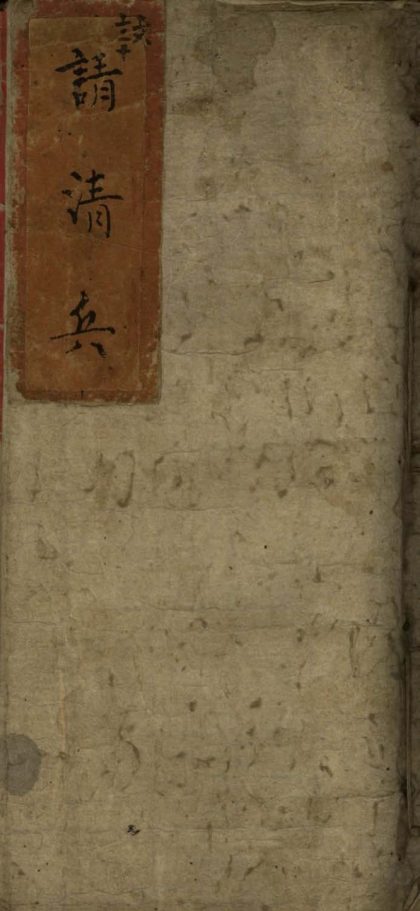 請清兵